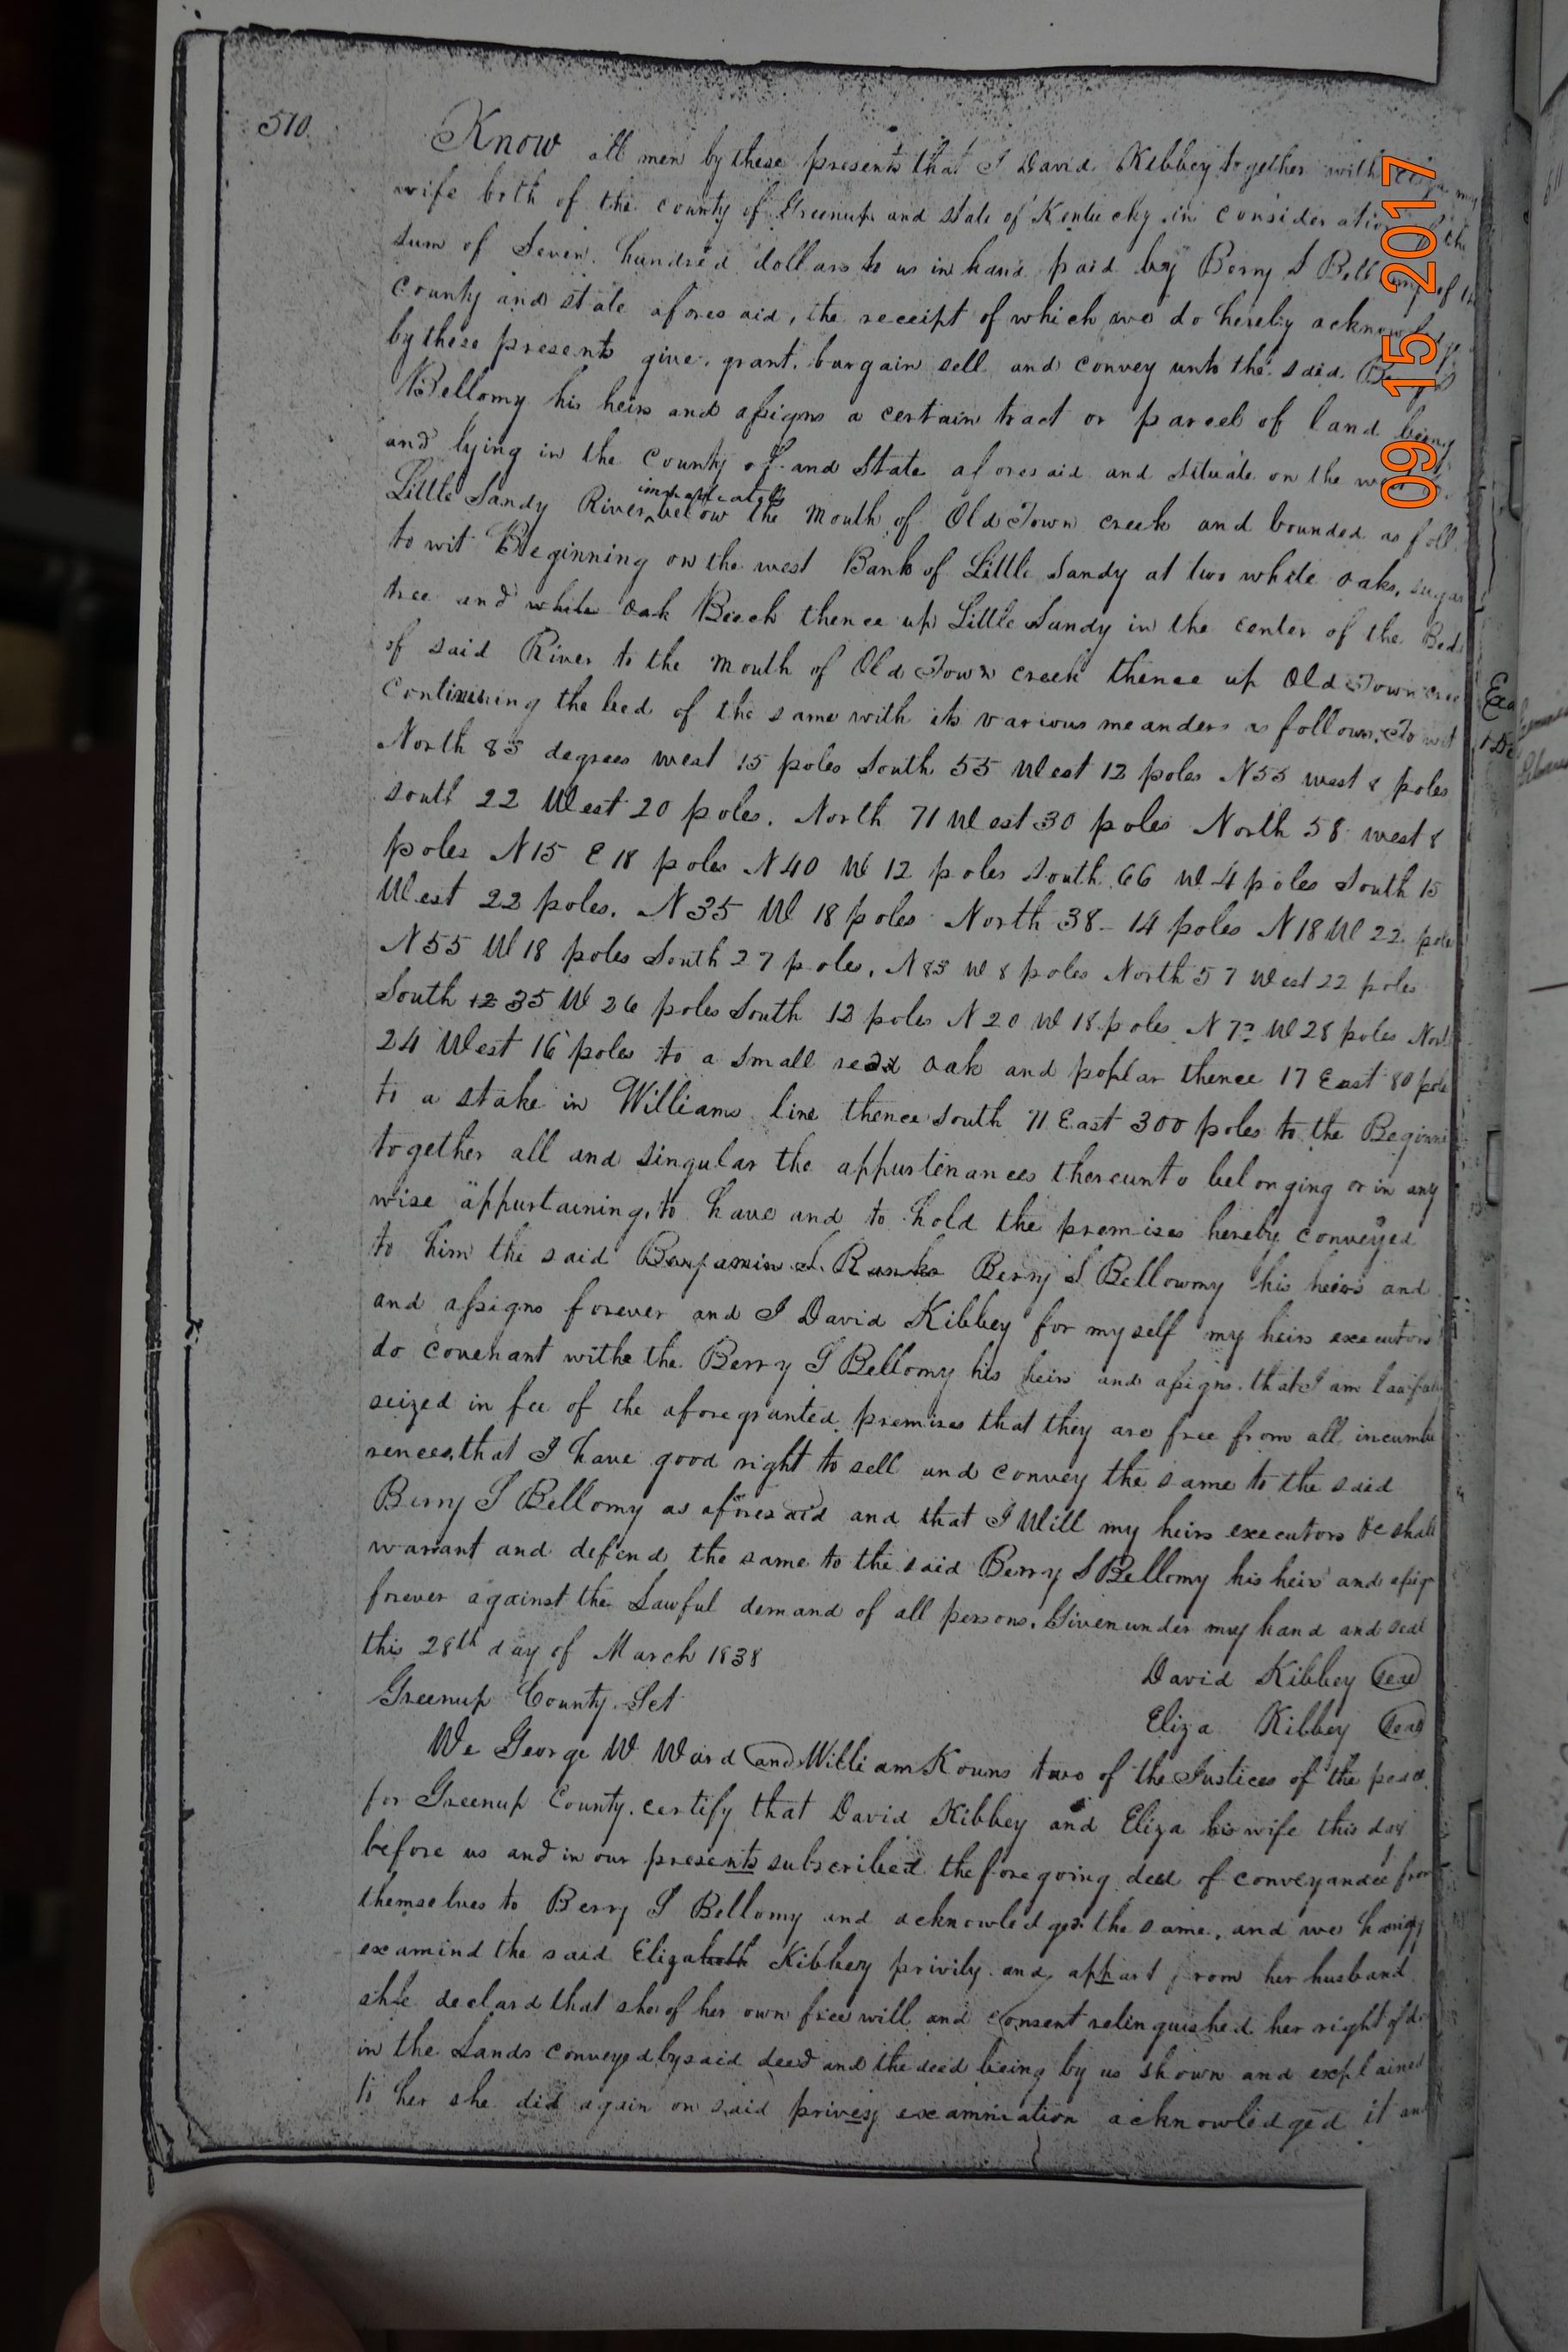 510.
Know all men by these presents that I David Kibbey together with Eliza my
wife both of the county of Greenup and state of Kentucky in consideration of the
sum of Seven hundred dollars to us in hand paid by Berry S Bellomy of the
county and state aforesaid, the receipt of which we do hereby acknowledge
by these presents give, grant, bargain sell and convey unto the said Berry S
Bellomy his heirs and assigns a certain tract or parcel of land being
and lying in the county of and State aforesaid and situate on the west of
immediately
Little Sandy River below the mouth of Old Town creek and bounded as foll
to wit Beginning on the west Bank of Little Sandy at two white oaks, sugar
tree and white oak Beech thence up Little Sandy in the center of the Bed
of said River to the mouth of Old Town creek thence up Old Town cree
continuing the bed of the same with its various meanders as follows, To wit
North 85 degrees west 15 poles South 55 West 12 poles N 55 west 8 poles
south 22 West 20 poles. North 71 West 30 poles North 58 west 8
poles N 15 E 18 poles N 40 W 12 poles south 66 W 4 poles South 15
West 22 poles. N 35 W 18 poles North 38 - 14 poles N 18 W 22 poles
N 55 W 18 poles South 27 poles, N 85 W 8 poles North 57 West 22 poles
South 12 35 W 26 poles South 12 poles N 20 W 18 poles N W 28 poles Nort
24 West 16 poles to a small red oak and poplar thence 17 East 80 pole
to a stake in Williams line thence south 71 East 300 poles to the Beginni
together all and singular the appurtenances thereunto belonging or in any
wise appurtaining, to have and to hold the premises hereby conveyed
to him the said Benjamin S. Banks Berry S Bellowmy his heirs and
and assigns forever and I David Kibbey for myself my heirs executors
do covenant withe the Berry S Bellomy his heirs and assigns. that I am lawfully
seized in fee of the aforegranted premises that they are free from all incumb
rences, that I have good right to sell and convey the same to the said
Berry S Bellomy as aforesaid and that I Will my heirs executors &c shall
warrant and defend the same to the said Berry S Bellomy his heirs and assigns
forever against the Lawful demand of all persons. Given under my hand and seal
this 28th day of March 1838
David Kibbey Seal
Greenup County Sct
Eliza Kibbey Seal
We George W Ward and William Kouns two of the Justices of the peace
for Greenup County. certify that David Kibbey and Eliza his wife this day
before us and in our presents subscribed the foregoing deed of conveyance from
themselves to Berry S Bellomy and acknowledged the same, and we having
examind the said Elizabeth Kibbey privily and appart from her husband
she declard that she of her own free will and consent relinquished her right of d
in the Lands conveyed by said deed and the deed being by us shown and explained
to her she did again on said privey examination acknowledged it and
09 15 2017